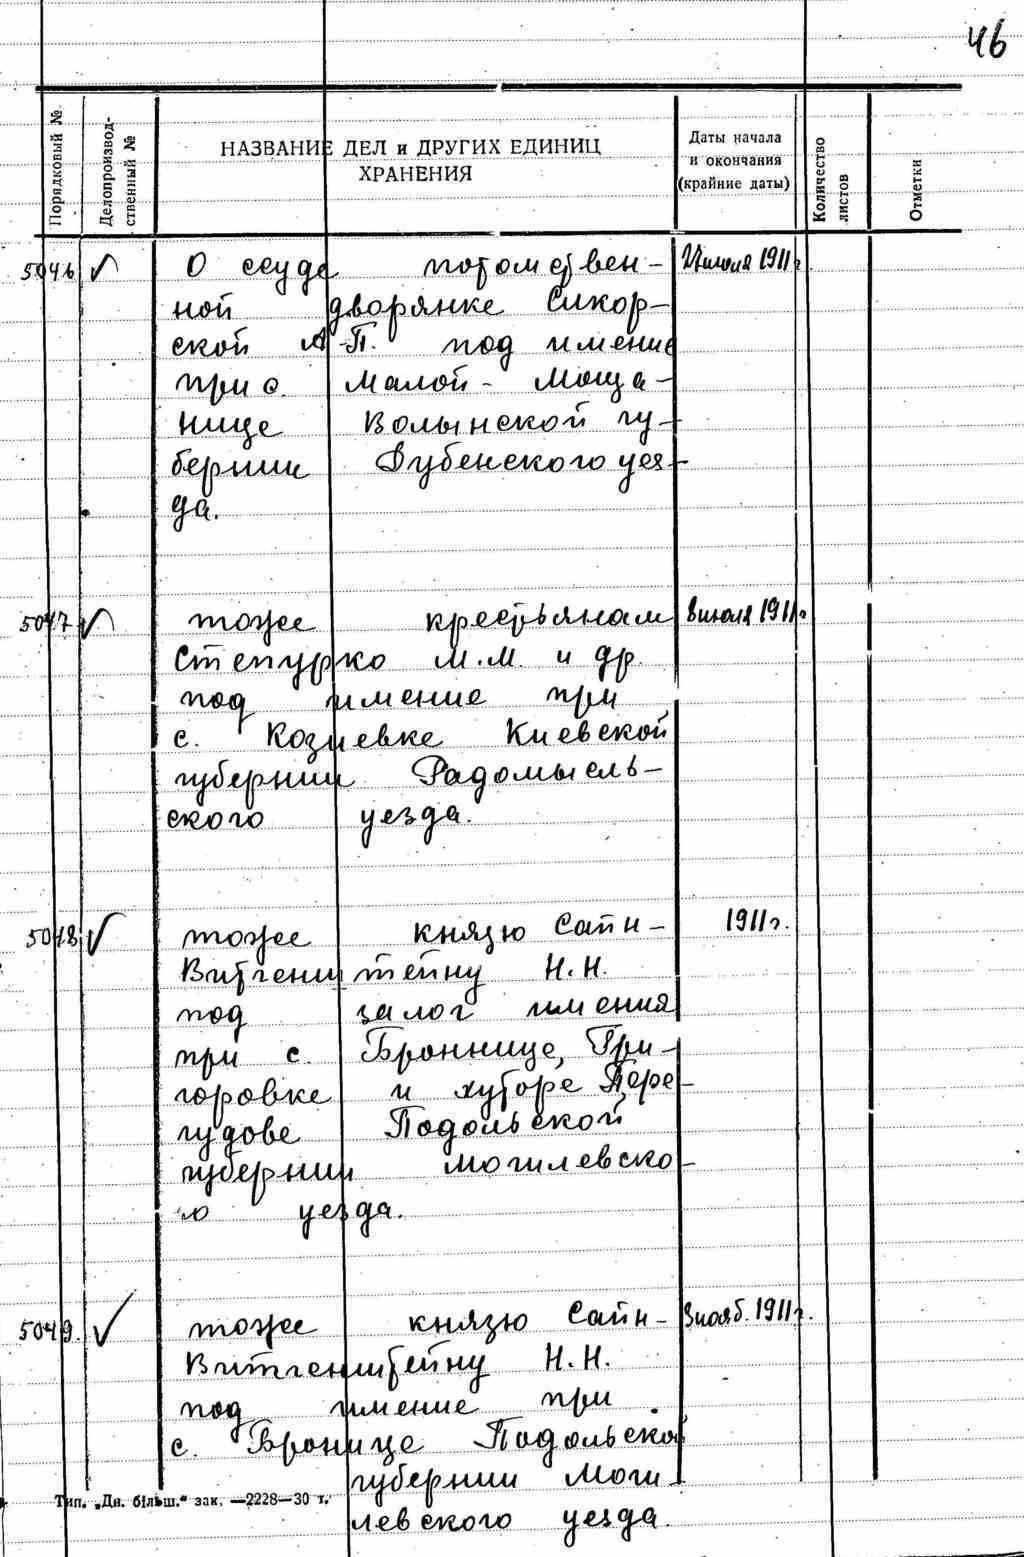 46
Порядковый №
Делопроизвод-
ственный №
НАЗВАНИЕ ДЕЛ и ДРУГИХ ЕДИНИЦ
ХРАНЕНИЯ
Даты начала
и окончания
(крайние даты)
Количество
листов
Отметки
5046 ✓ О ссуде потомствен- июля 1911г.
ной дворянке Сикор-
ской А-П. под имение
при с. Малой - Моща-
нице Волынской гу-
бернии Дубенского уез-
да.
5047 ✓ тоже крестьянам 8 июля 1911г
Степурко М.М. и др.
под имение при
с. Козиевке Киевской
губернии Радомысль-
ского уезда.
5048 ✓ тоже князю Сайн- 1911г.
Витгенштейну Н.Н.
под залог имения
при с. Броннице, Гри-
горовке и хуторе Пере-
гудове Подольской
губернии Могилевско-
го уезда.
5049. ✓ тоже князю Сайн- 3 нояб. 1911г.
Витгенштейну Н.Н.
под имение при
с. Бронице Подольской
губернии Моги-
Тип. „Дн. більш." зак. —2228—30 т.
левского уезда.